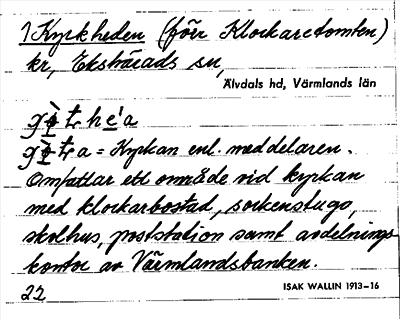 1 Kyrkheden (förr Klockaretomten)
kr, Ekshärads sn,
Älvdals hd, Värmlands län
= Kyrkan enl. meddelaren.
Omfattar ett område vid kyrkan
med klockarbostad, sockenstuga,
skolhus, poststation samt avdelnings
kontor av Värmlandsbanken.
22
ISAK WALLIN 1913-16